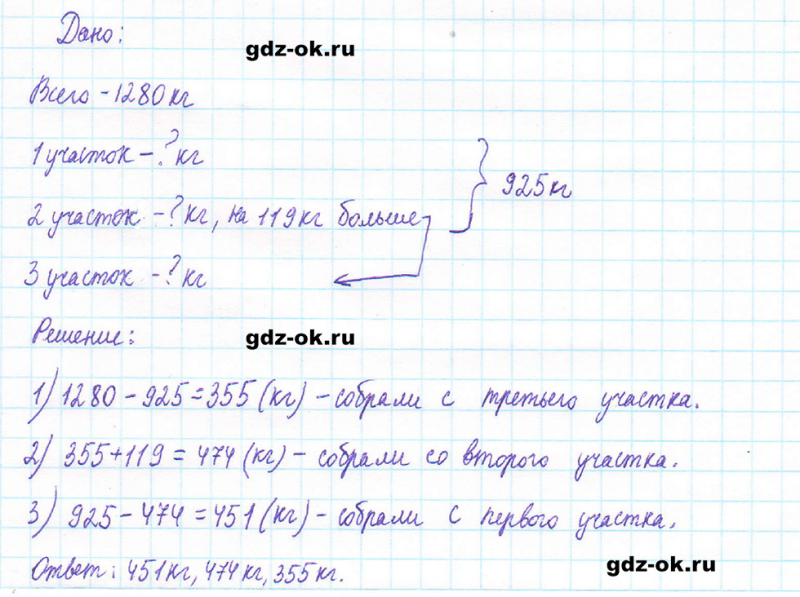 Дано:
gdz-ok.ru
Всего - 1280 кг
1 участок - ? кг
925 кг
2 участок - ? кг, на 119 кг больше
3 участок - ? кг
Решение:
gdz-ok.ru
1) 1280 - 925 = 355 (кг) - собрали с третьего участка.
2) 355 + 119 = 474 (кг) - собрали со второго участка.
3) 925 - 474 = 451 (кг) - собрали с первого участка.
Ответ: 451 кг, 474 кг, 355 кг.
gdz-ok.ru